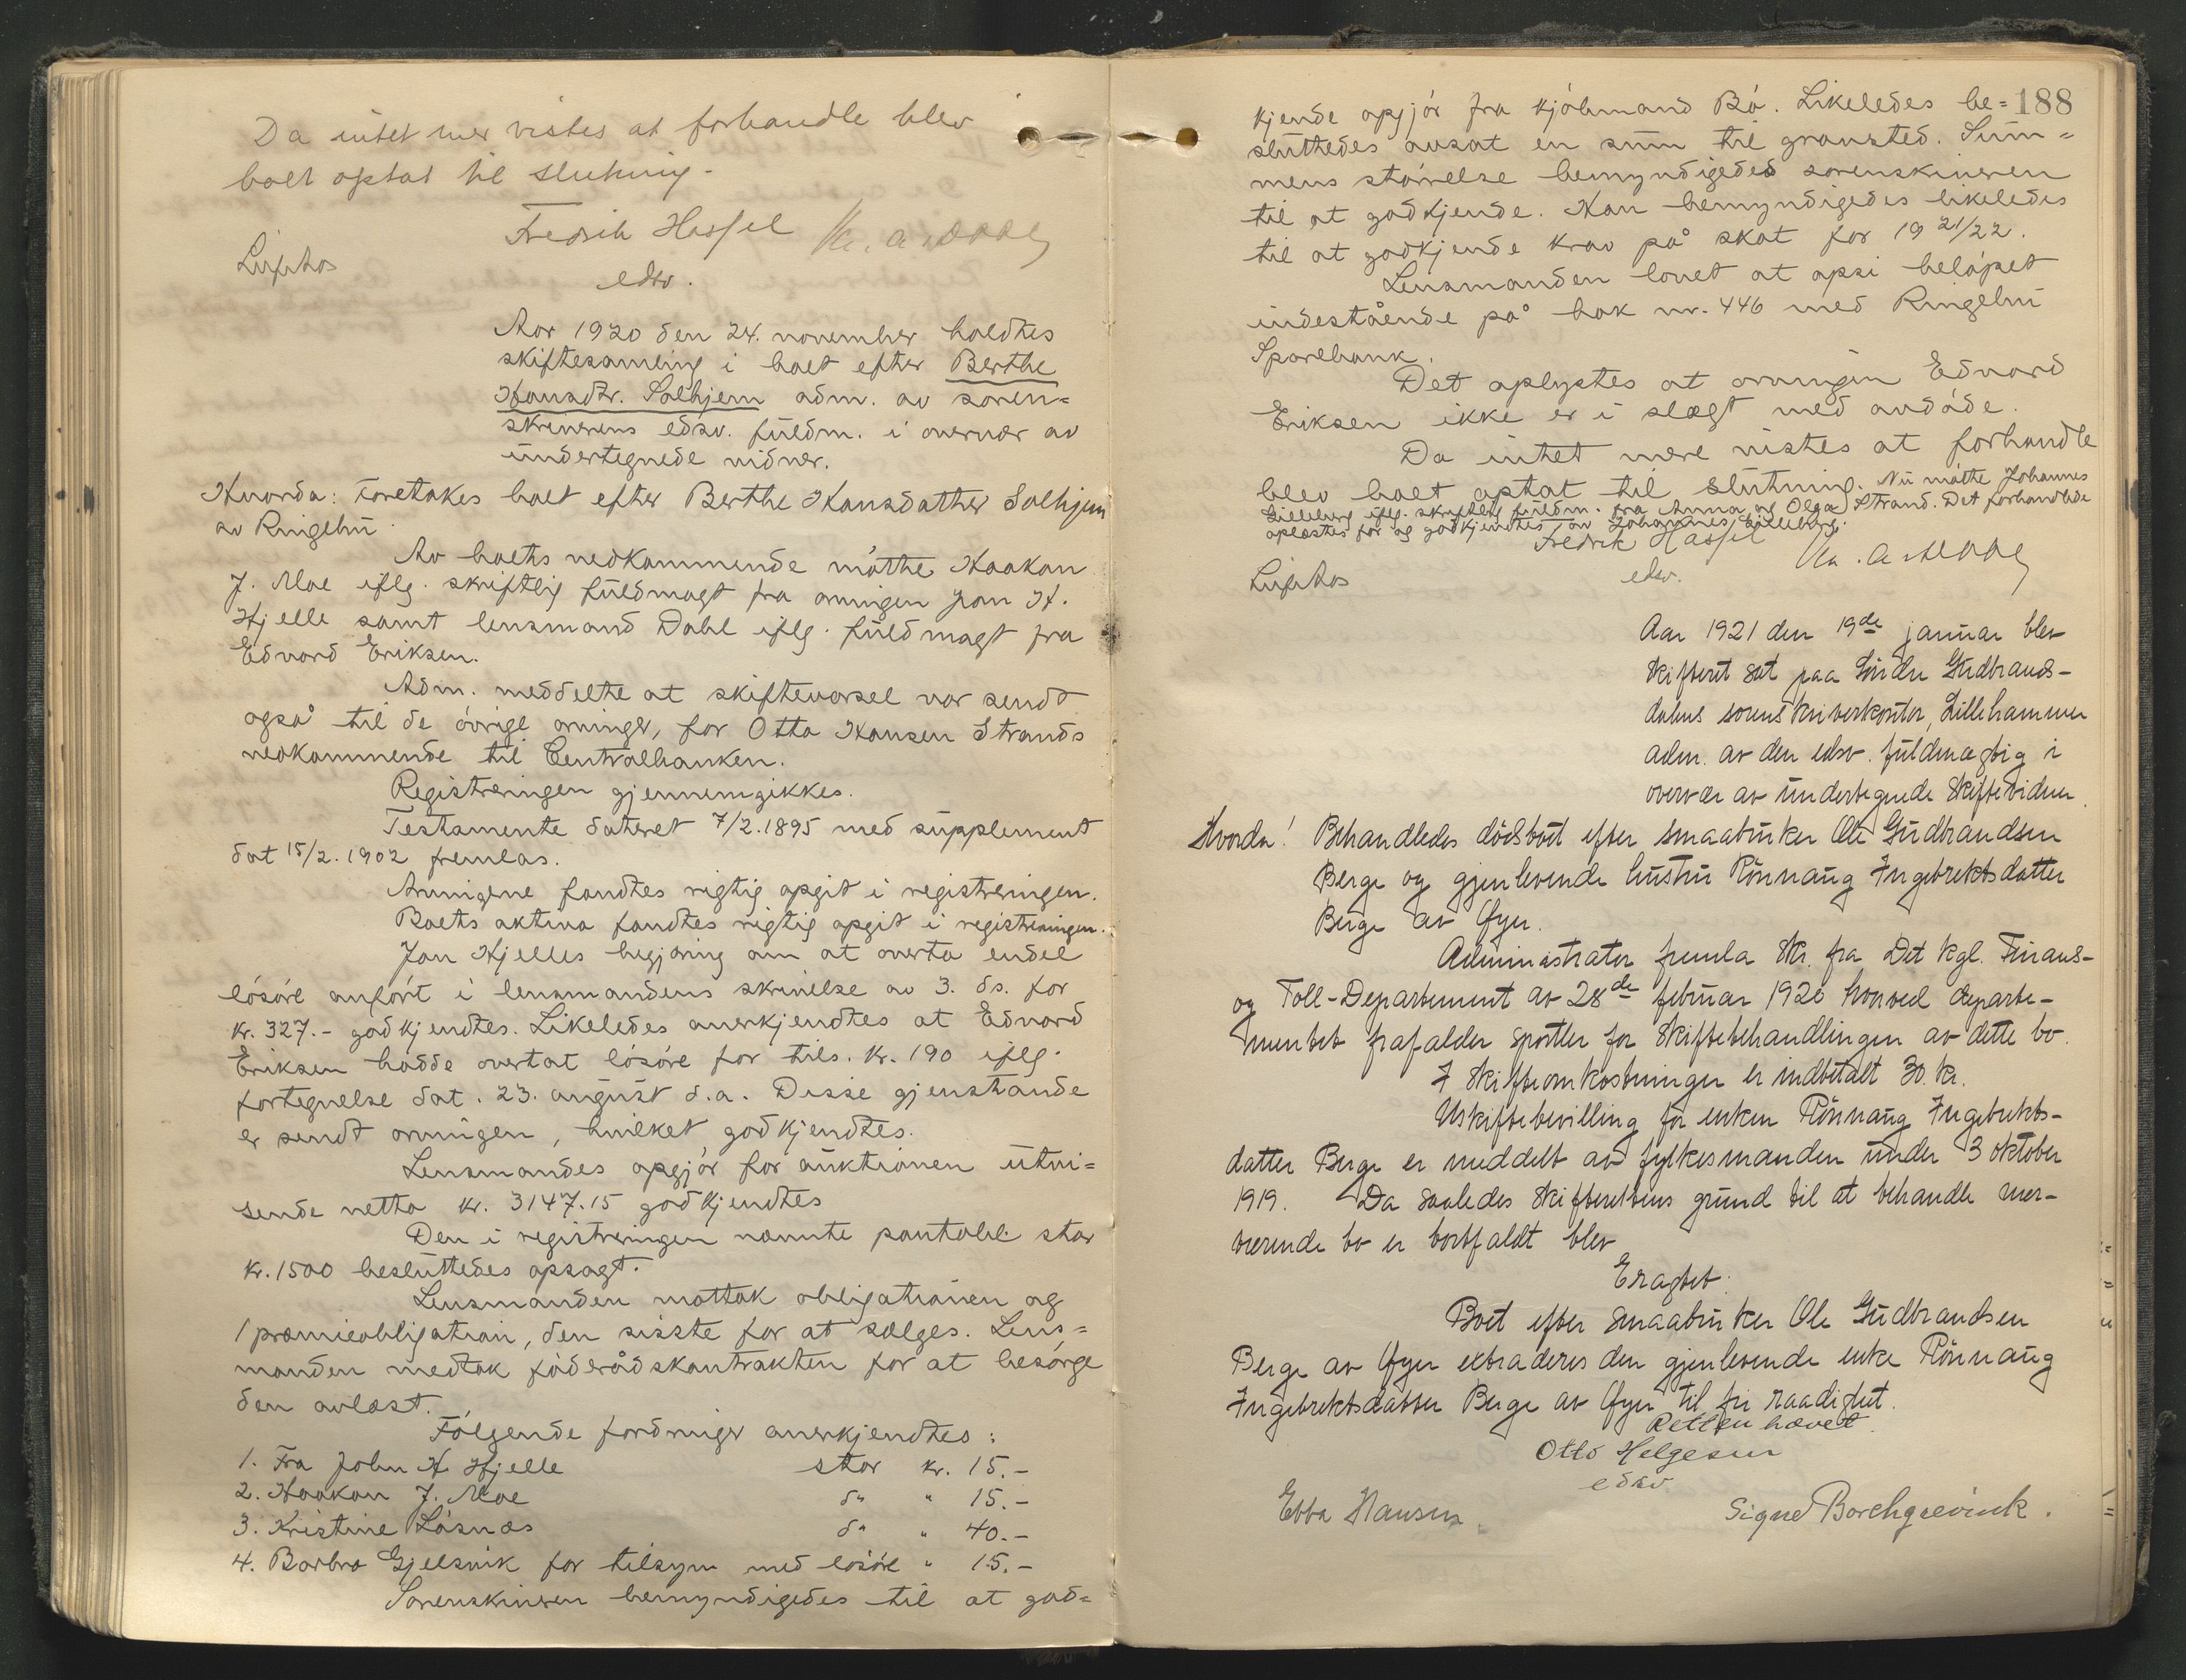 Da intet mer vistes at forhandle blev
boet optat til slutning.
Fredrik Hassel
edsv.
Aar 1920 den 24. november holdtes
skiftesamling i boet efter Berthe
Hansdtr. Solhjem adm. av soren=
skriverens edsv. fuldm. i overvær av
undertegnede vidner.
Hvorda: Foretokes boet efter Berthe Hansdatter Solhjem
av Ringebu.
Av boets vedkommende møtte Haakon
J. Moe iflg. skriftlig fuldmagt fra arvingen Jon H.
Hjelle samt lensmand Dahl iflg. fuldmagt fra
Edvard Eriksen.
Adm. meddelte at skiftevarsel var sendt
også til de øvrige arvinger, for Otto Hansen Strands
vedkommende til Centralbanken.
Registreringen gjennemgikkes.
Testamente dateret 7/2.1895 med supplement
dat 15/2.1902 fremlas.
Arvingene fandtes rigtig opgit i registreringen.
Boets aktiva fandtes rigtig opgit i registreringen.
Jon Hjelles begjæring om at overta endel
løsøre anført i lensmandens skrivelse av 3. ds. for
kr. 327.- godkjendtes. Likeledes anerkjendtes at Edvard
Eriksen hadde overtat løsøre for tils. kr. 190 iflg.
fortegnelse dat. 23. august d.a. Disse gjenstande
er sendt arvingen, hvilket godkjendtes.
Lensmandes opgjør for auktionen utvi=
sende netto kr. 3147.15 godkjendtes
Den i registreringen nævnte pantobl. stor
kr. 1500 besluttedes opsagt.
Lensmanden mottok obligationen og
1 præmieobligation, den sisste for at sælges. Lens=
manden medtok føderådskontrakten for at besørge
den avlæst.
Følgende fordringer anerkjendtes:
1. Fra John H Hjelle stor kr. 15.-
2. Haakon J. Moe do " 15.-
3. Kristine Løsnæs do " 40.-
4. Barbro Gjelsvik for tilsyn med løsøre " 15.-
Sorenskriveren bemyndigedes til at god=
188
kjende opgjør fra kjøbmand Bø. Likeledes be=
sluttedes avsat en sum til gravsted. Sum=
mens størrelse bemyndigedes sorenskriveren
til at godkjende. Han bemyndigedes likeledes
til at godkjende krav på skat for 19 21/22.
Lensmanden lovet at opsi beløpet
indestående på bok nr. 446 med Ringebu
Sparebank.
Det oplystes at arvingen Edvard
Eriksen ikke er i slægt med avdøde.
Da intet mere vistes at forhandle
blev boet optat til slutning. Nu møtte Johannes
Lilleberg iflg. skriftlig fuldm. fra Anna og Olga Strand. Det forhandlede
oplæstes for og godkjendtes av Johannes Lilleberg.
Fredrik Hassel
edsv.
Aar 1921 den 19de januar blev
skifteret sat paa Søndre Gudbrands-
dalens sorenskriverkontor, Lillehammer
adm. av den edsv. fuldmægtig i
overvær av undertegnede skiftevidner.
Hvorda! Behandledes dødsboet efter smaabruker Ole Gudbrandsen
Berge og gjenlevende hustru Rønnaug Ingebrektsdatter
Berge av Øyer.
Administrator fremla skr. fra Det kgl. Finans-
og Toll-Departement av 28de februar 1920 hvorved departe-
mentet frafalder sportler for skiftebehandlingen av dette bo.
I skifteomkostninger er indbetalt 30 kr.
Uskiftebevilling for enken Rønnaug Ingebrekts-
datter Berge er meddelt av fylkesmanden under 3 oktober
1919. Da saaledes skifterettens grund til at behandle nær-
værende bo er bortfaldt blev
Eragtet:
Boet efter smaabruker Ole Gudbrandsen
Berge av Øyer extraderes den gjenlevende enke Rønnaug
Ingebrektsdatter Berge av Øyer til fri raadighet.
Retten hævet.
Otto Helgesen
edsv.
Ebba Hansen.
Signe Borchgrevink.